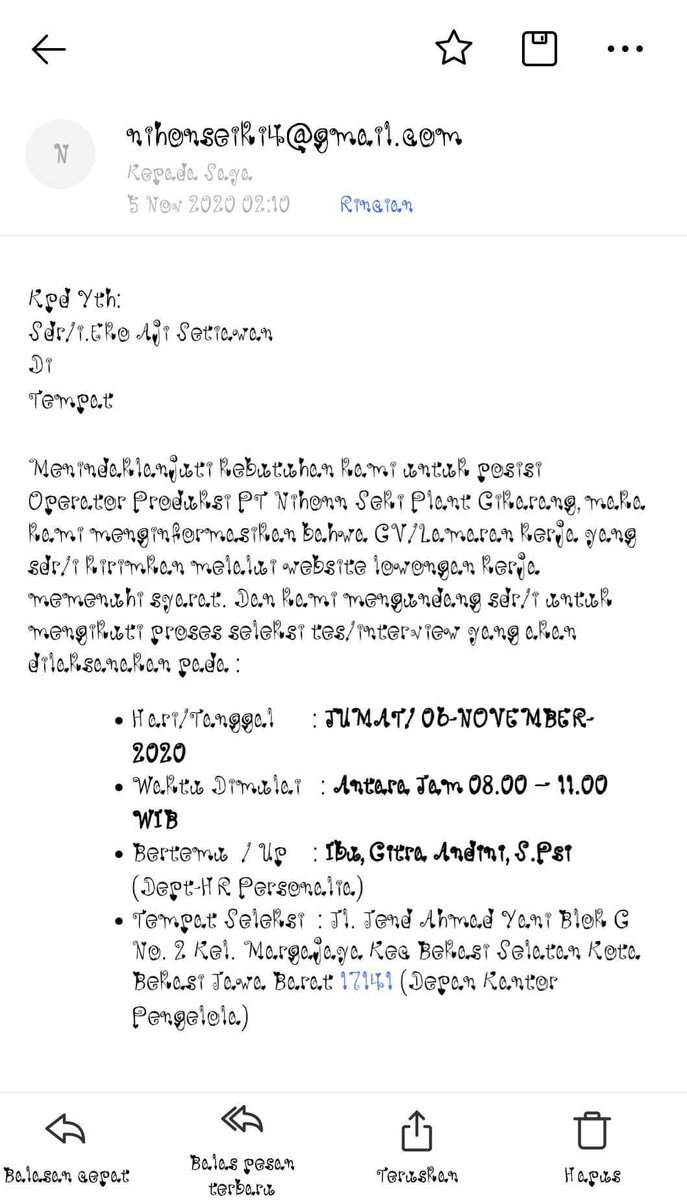 N
nihonseiki4@gmail.com
Kepada Saya
5 Nov 2020 02:10 Rincian
Kpd Yth:
Sdr/i.Eko Aji Setiawan
Di
Tempat
Menindaklanjuti kebutuhan kami untuk posisi
Operator Produksi PT Nihonn Seki Plant Cikarang, maka
kami menginformasikan bahwa CV/Lamaran kerja yang
sdr/i kirimkan melalui website lowongan kerja
memenuhi syarat. Dan kami mengundang sdr/i untuk
mengikuti proses seleksi tes/interview yang akan
dilaksanakan pada :
• Hari/Tanggal : JUMAT/ 06-NOVEMBER-
2020
• Waktu Dimulai : Antara Jam 08.00 – 11.00
WIB
• Bertemu / Up : Ibu, Citra Andini, S.Psi
(Dept-HR Personalia)
• Tempat Seleksi : Jl. Jend Ahmad Yani Blok C
No. 2 Kel. Margajaya Kec Bekasi Selatan Kota
Bekasi Jawa Barat 17141 (Depan Kantor
Pengelola)
Balasan cepat
Balas pesan
terbaru
Teruskan
Hapus